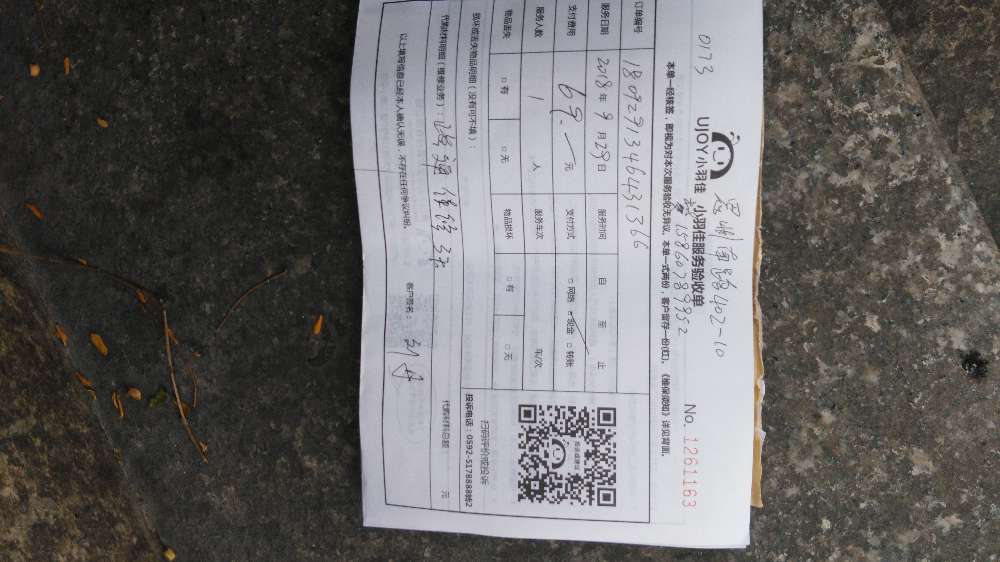 0173
402-10
15860789952
UJOY小羽佳 小羽佳服务验收单
No. 1261163
本单一经核签，即视为对本次服务验收无异议。本单一式两份，客户留存一份(红)。《维保须知》详见背面。
订单编号 1809291346431366
服务日期 2018年9月29日 服务时间 自 至 止
支付费用 69.— 元 支付方式 □网络 ☑现金 □转账
服务人数 1 人 服务车次 车/次
物品丢失 □有 □无 物品损坏 □有 □无
扫码评价或投诉
投诉电话：0592-5178888转2
损坏或丢失物品明细（没有可不填）：
代购材料明细（维修业务）： 代购材料总额： 元
以上填写信息已经本人确认无误，不存在任何争议纠纷。
客户签名：